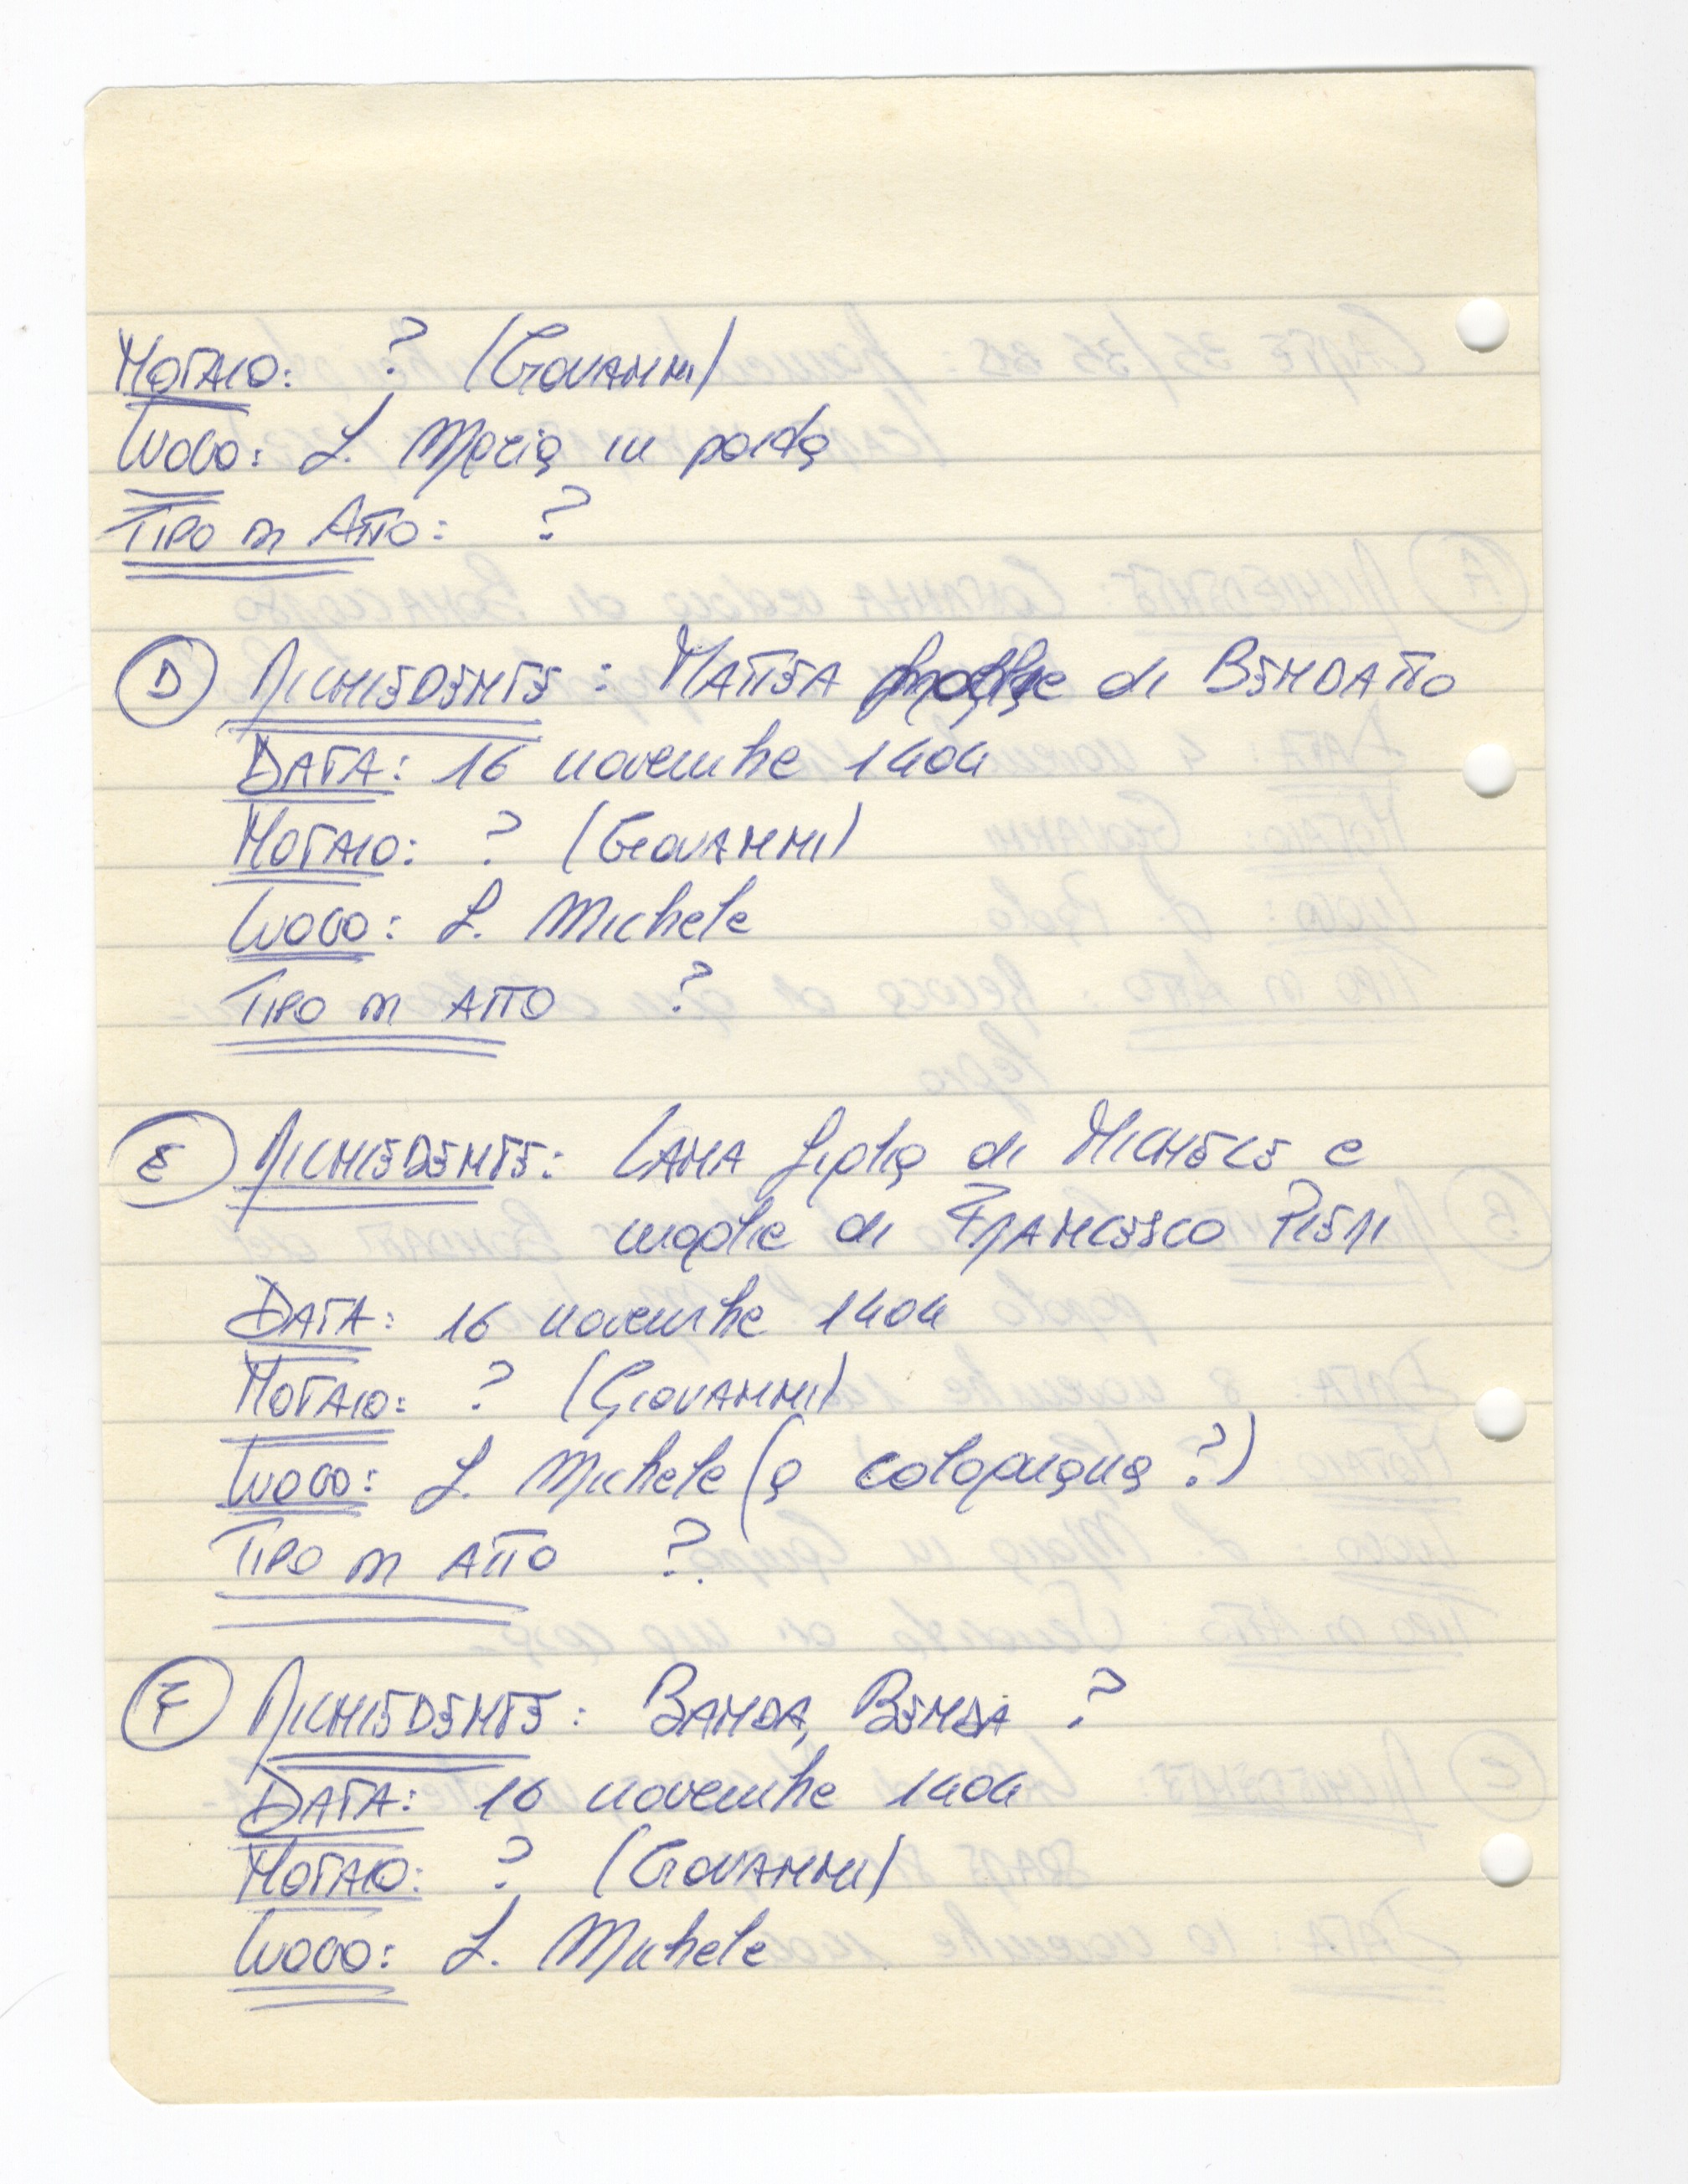 NOTAIO: ? (GIOVANNI)
LUOGO: S. Maria in
TIPO DI ATTO: ?
D RICHIEDENTE: MATTEA moglie di BENDATTO
DATA: 16 novembre 1404
NOTAIO: ? (GIOVANNI)
LUOGO: S. Michele
TIPO DI ATTO ?
E RICHIEDENTE: LANA figlia di MICHELE e
moglie di FRANCESCO PIERI
DATA: 16 novembre 1404
NOTAIO: ? (GIOVANNI)
LUOGO: S. Michele (a ?)
TIPO DI ATTO ?
F RICHIEDENTE: BANDA, BENDA ?
DATA: 16 novembre 1404
NOTAIO: ? (GIOVANNI)
LUOGO: S. Michele